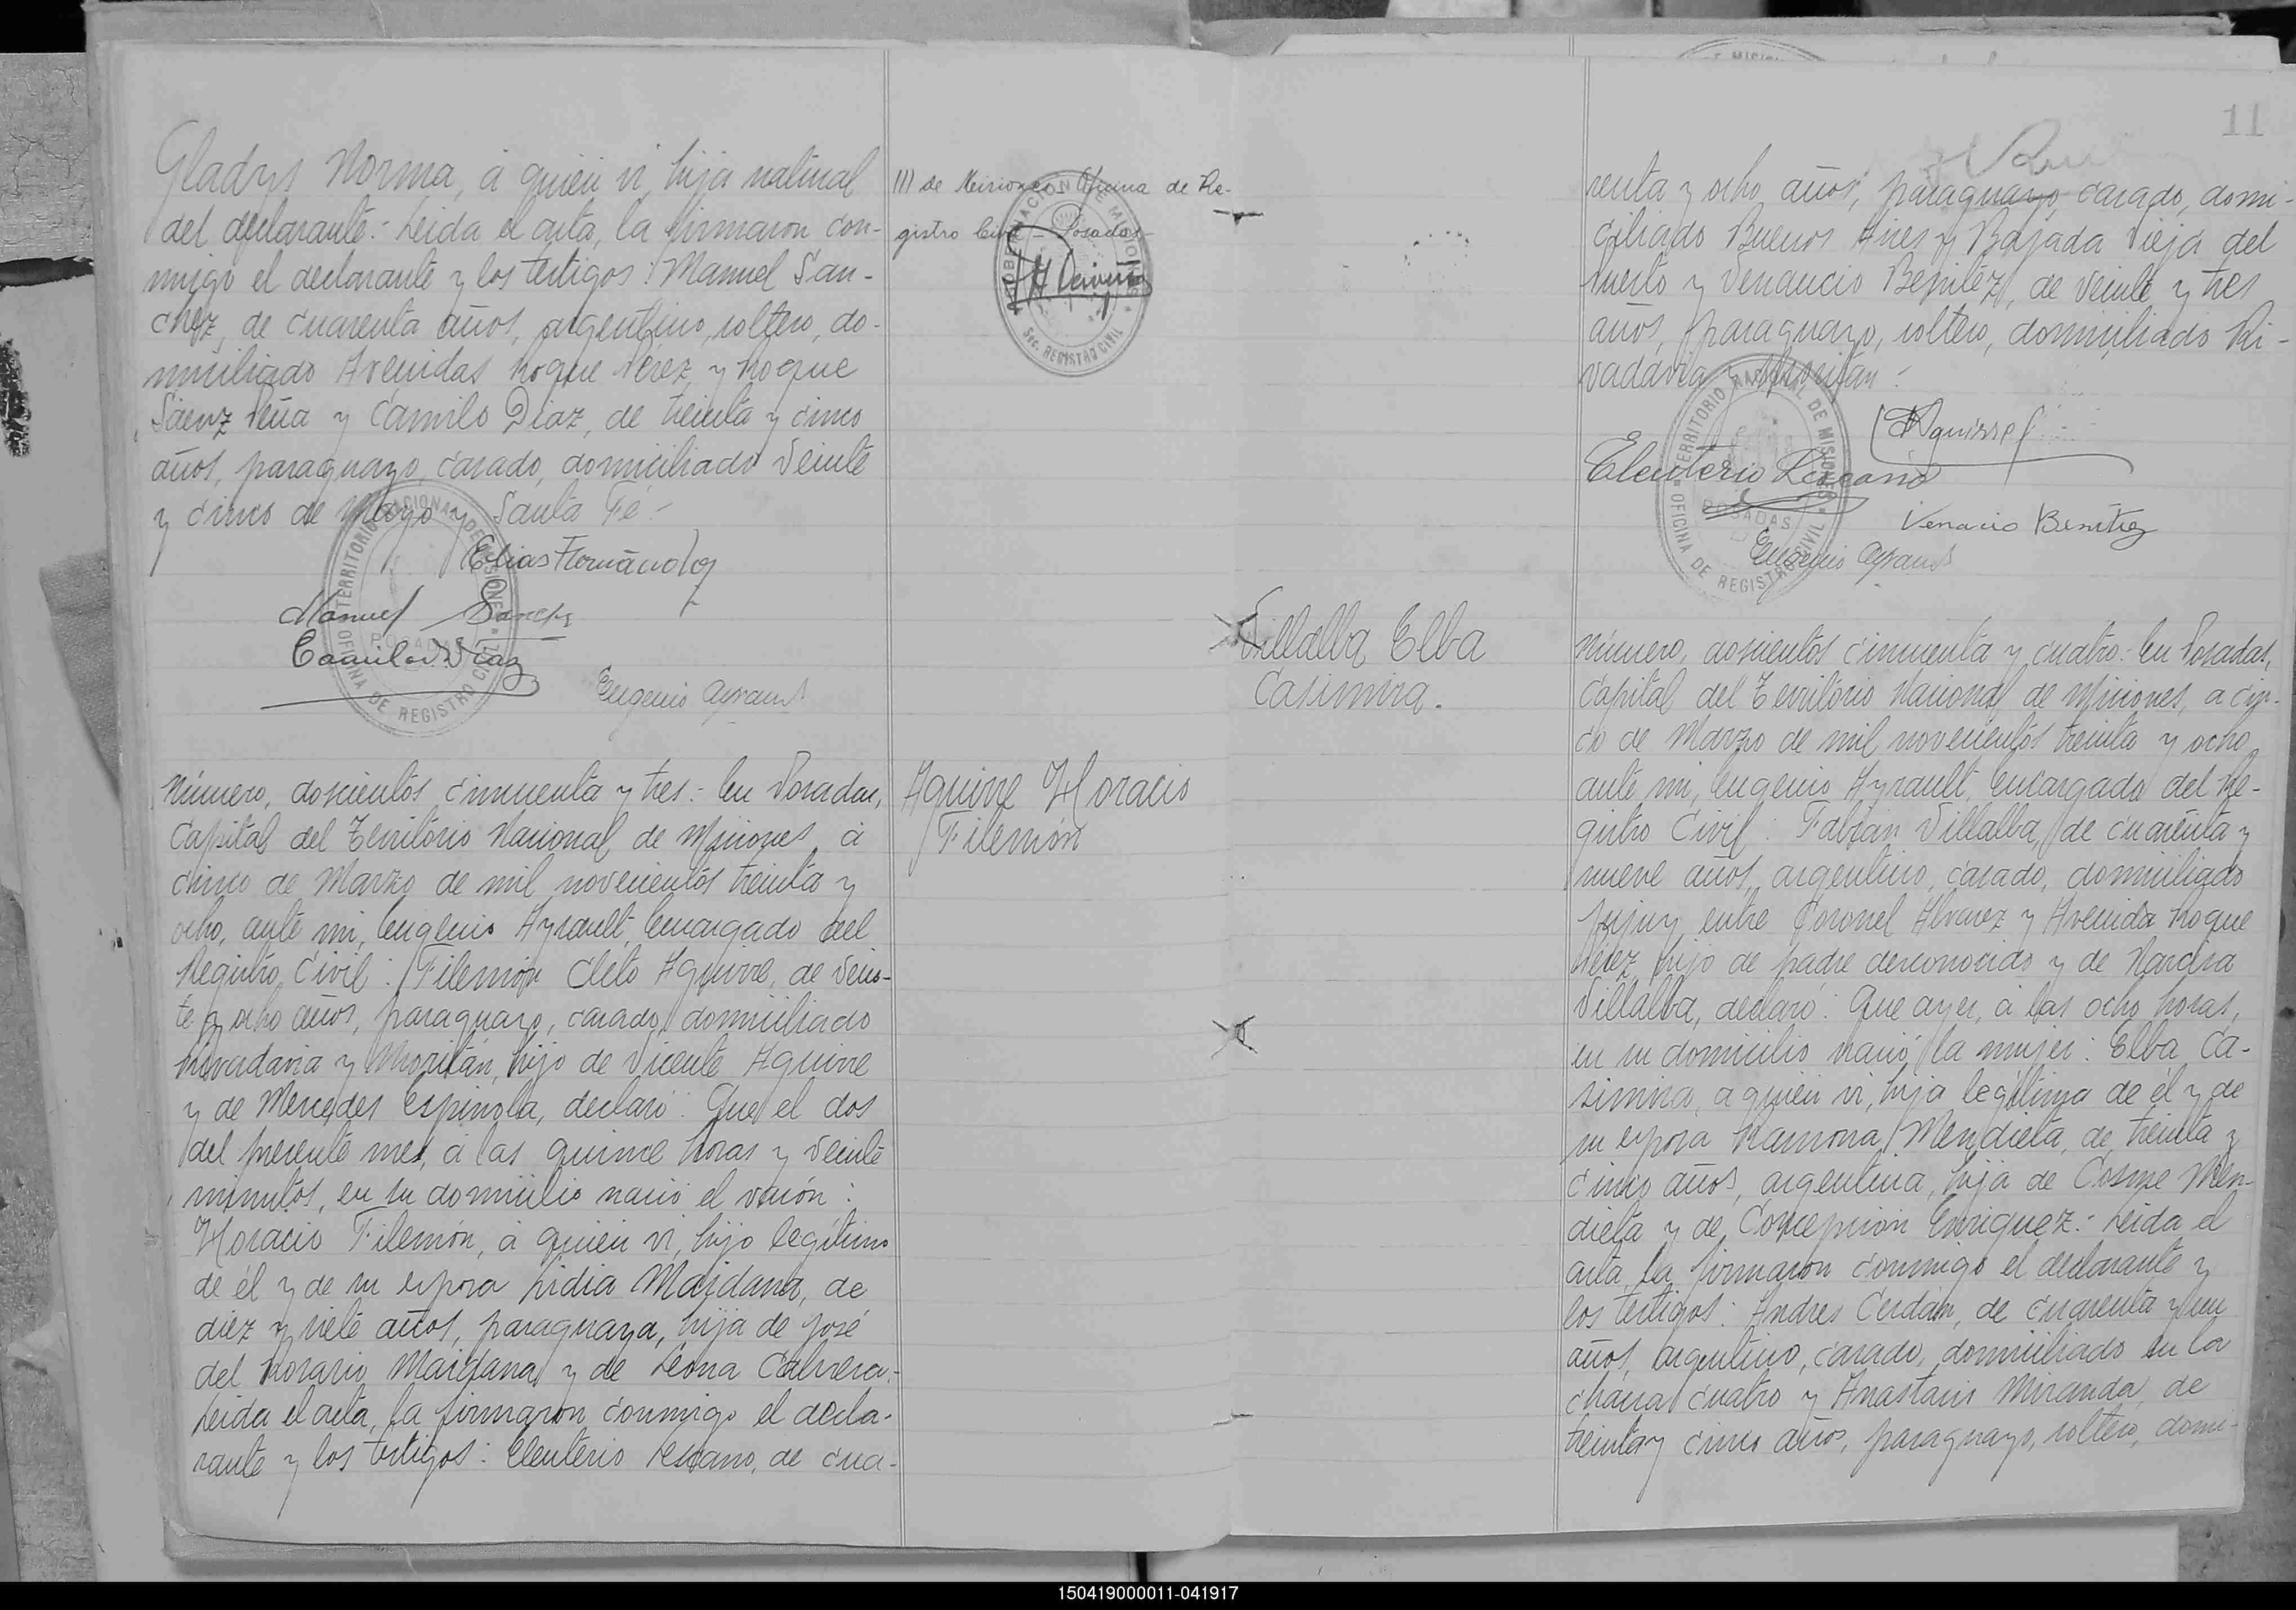 Gladys Norma, á quien vi, hija natural
del declarante.- Leida el acta, la firmaron con-
migo el declarante y los testigos: Manuel Sán-
chez, de cuarenta años, argentino, soltero, do-
miciliado Avenidas Roque Pérez y Roque
Sáenz Peña y Camilo Diaz, de treinta y cinco
años, paraguayo, casado, domiciliado Veinte
y cinco de Mayo y Santa Fé.-
Elias Fernández
Manuel Sanchs
Camilo Diaz
Eugenio Ayrault
TERRITORIO NACIONAL DE MISIONES
POSADAS
OFICINA DE REGISTRO CIVIL
Número, doscientos cincuenta y tres.- En Posadas,
Capital del Territorio Nacional de Misiones, á
cinco de Marzo de mil novecientos treinta y
ocho, ante mi, Eugenio Ayrault, Encargado del
Registro Civil: Filemón Cleto Aguirre, de vein-
te y ocho años, paraguayo, casado, domiciliado
Rivadavia y Moritán, hijo de Vicente Aguirre
y de Mercedes Espinola, declaró: Que el dos
del presente mes, á las quince horas y veinte
minutos, en su domicilio nació el varón:
Horacio Filemón, á quien vi, hijo legítimo
de él y de su esposa Lidia Maidana, de
diez y siete años, paraguaya, hija de José
del Rosario Maidana y de Leona Cabrera.-
Leida el acta, la firmaron conmigo el decla-
rante y los testigos: Eleuterio Lezcano, de cua-
III de Misiones - Oficina de Re-
gistro Civil - Posadas
GOBERNACION DE MISIONES
Sec. REGISTRO CIVIL
Aguirre Horacio
Filemón
11
renta y ocho años, paraguayo, casado, domi-
ciliado Buenos Aires y Bajada Vieja del
Puerto y Venancio Benitez, de veinte y tres
años, paraguayo, soltero, domiciliado Ri-
vadavia y Moritán.-
Aguirre
Eleuterio Lezcano
Venacio Benitez
Eugenio Ayrault
TERRITORIO NACIONAL DE MISIONES
POSADAS
OFICINA DE REGISTRO CIVIL
Villalba Elba
Casimira.
Número, doscientos cincuenta y cuatro.- En Posadas,
Capital del Territorio Nacional de Misiones, a cin-
co de Marzo de mil novecientos treinta y ocho,
ante mi, Eugenio Ayrault, Encargado del Re-
gistro Civil: Fabian Villalba, de cuarenta y
nueve años, argentino, casado, domiciliado
Jujuy entre Coronel Alvarez y Avenida Roque
Pérez, hijo de padre desconocido y de Narcisa
Villalba, declaró: Que ayer, á las ocho horas,
en su domicilio nació la mujer: Elba Ca-
simira, a quien vi, hija legítima de él y de
su esposa Ramona Mendieta, de treinta y
cinco años, argentina, hija de Cosme Men-
dieta y de Concepción Enriquez.- Leida el
acta, la firmaron conmigo el declarante y
los testigos: Andres Cerdán, de cuarenta y un
años, argentino, casado, domiciliado en la
chacra cuatro y Anastacio Miranda, de
treinta y cinco años, paraguayo, soltero, domi-
150419000011-041917